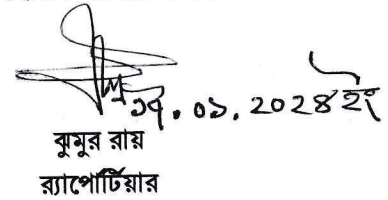 ১৭.০১.২০২৪ ইং
ঝুমুর রায়
র‍্যাপোর্টিয়ার